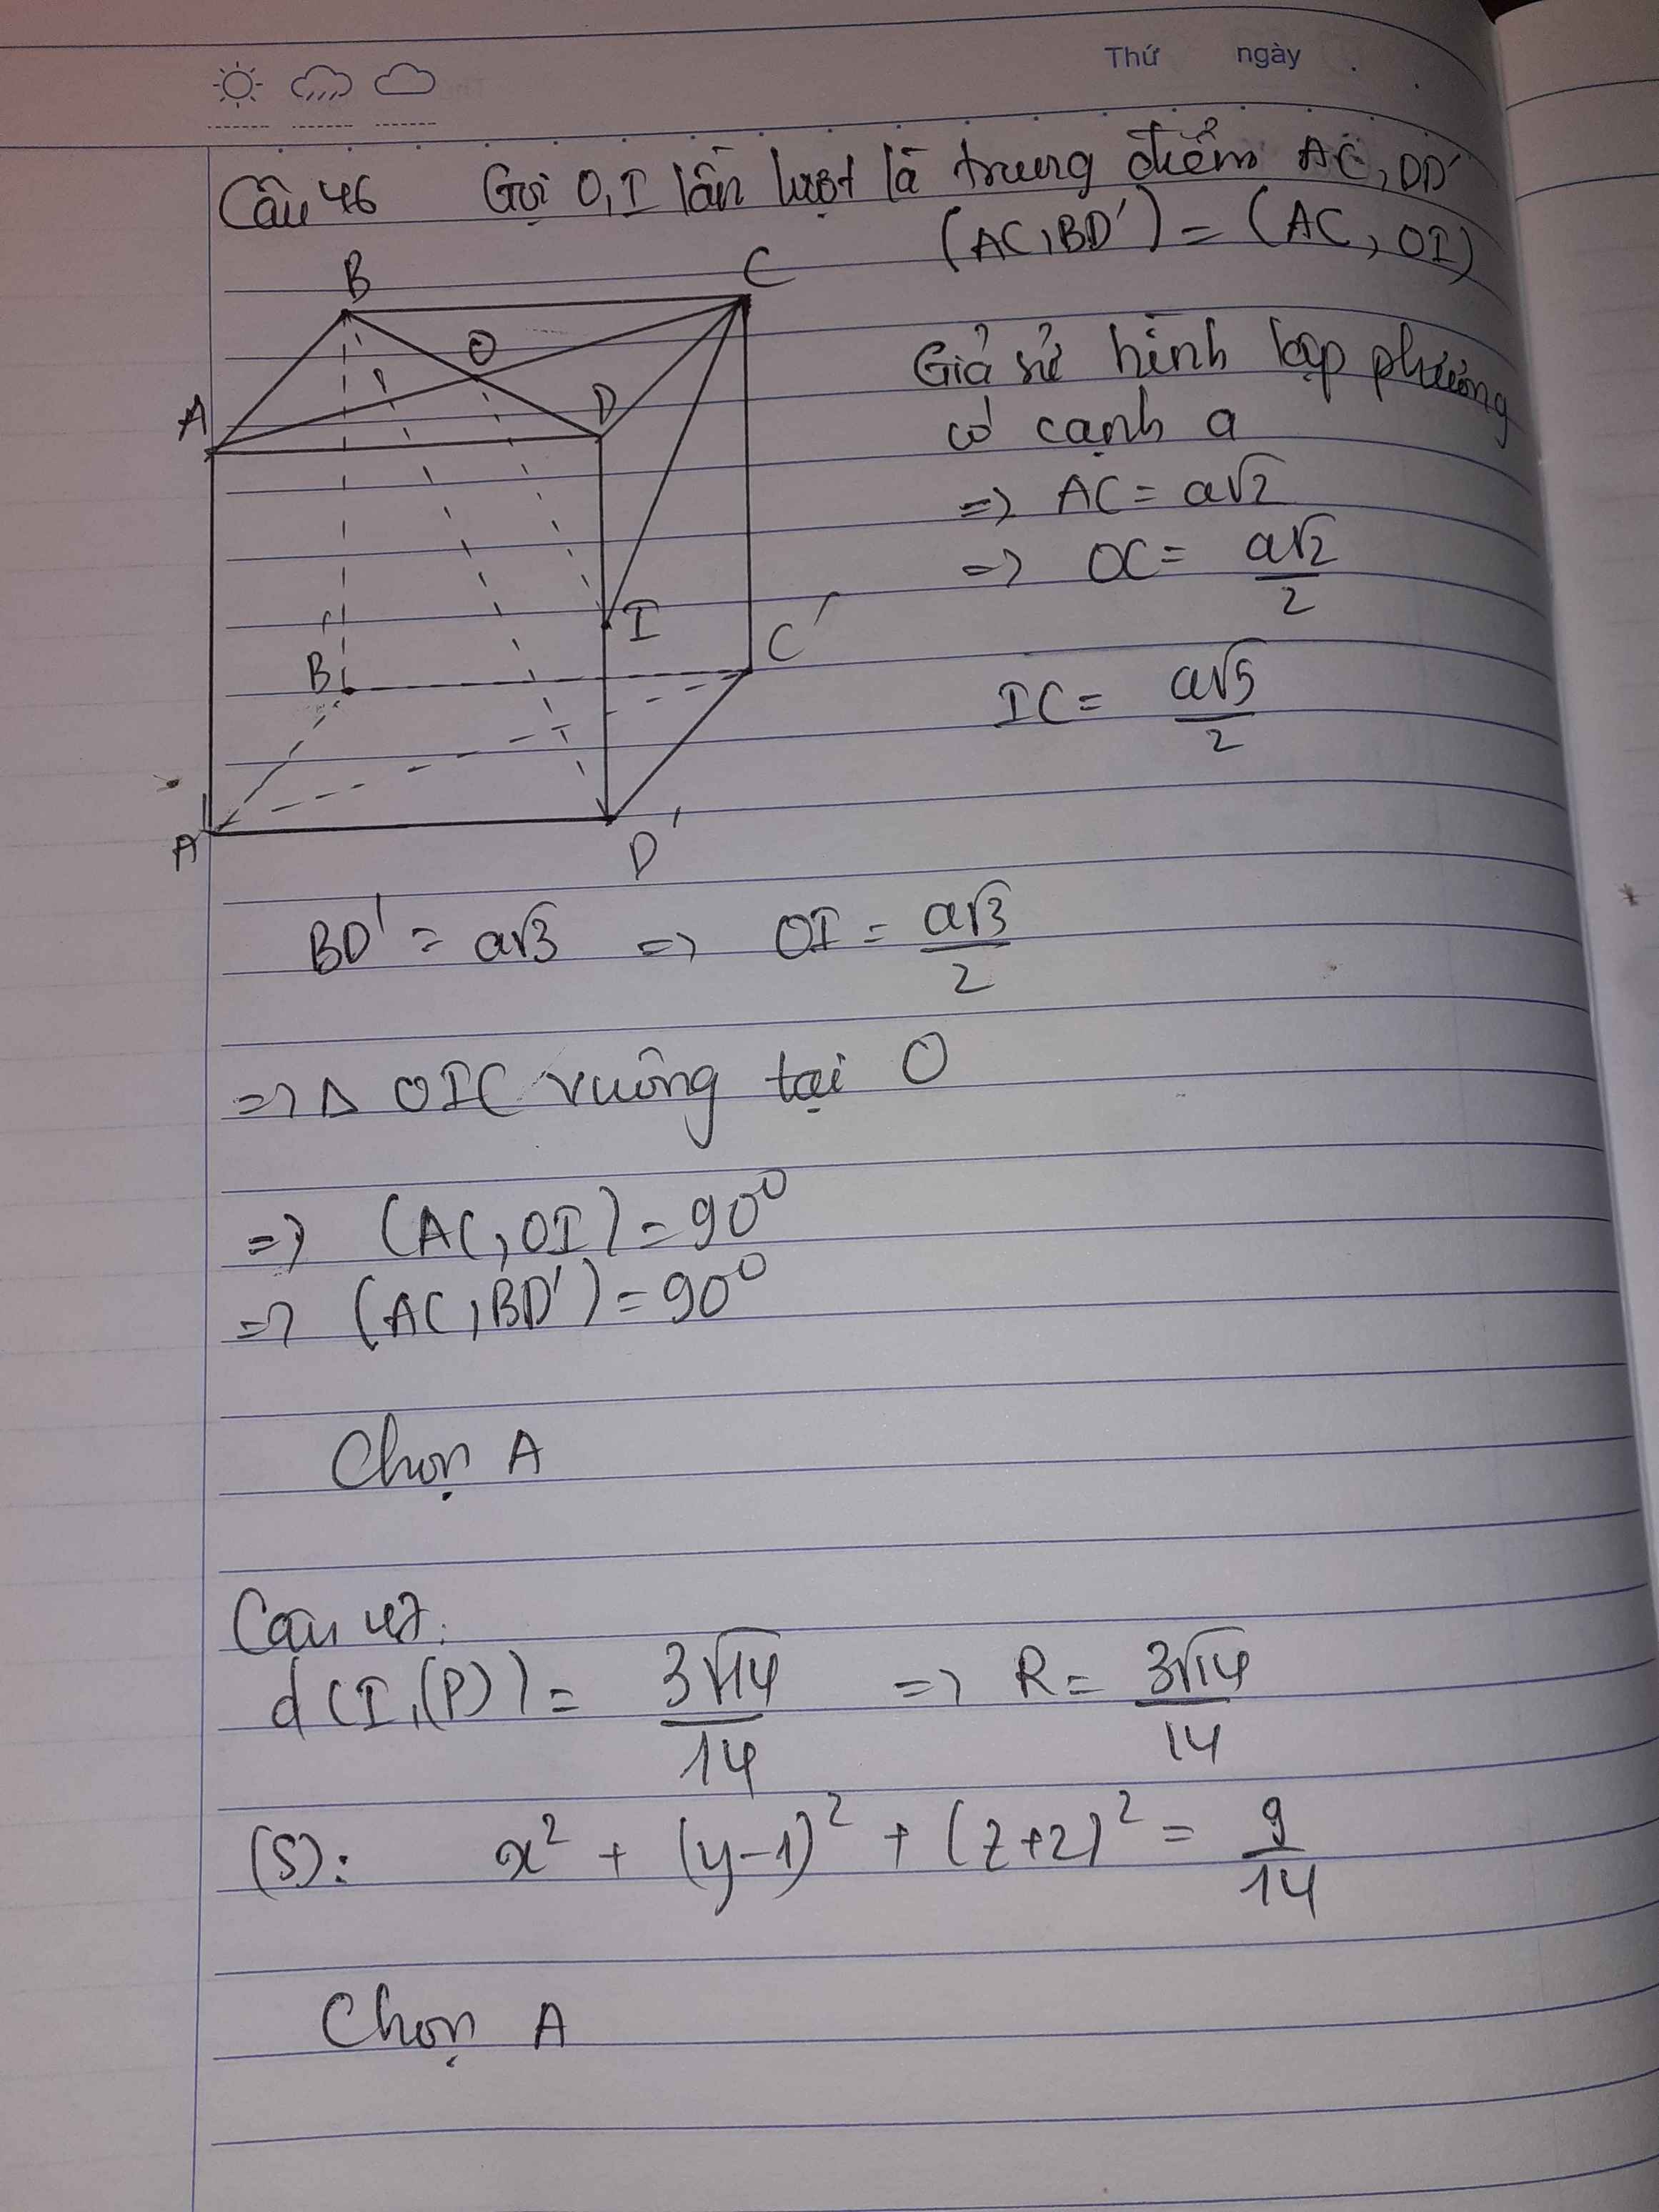 Thứ ngày
Câu 46 Gọi O, I lần lượt là trung điểm AC, DD'
(AC, BD') = (AC, OI)
B C
O
A D
Giả sử hình lập phương
có cạnh a
=> AC = a√2
=> OC = a√2/2
I
B' C'
IC = a√5/2
A' D'
BD' = a√3 => OI = a√3/2
=> Δ OIC vuông tại O
=> (AC, OI) = 90°
=> (AC, BD') = 90°
Chọn A
Câu 47:
d(I,(P)) = 3√14/14 => R = 3√14/14
(S): x² + (y-1)² + (z+2)² = 9/14
Chọn A